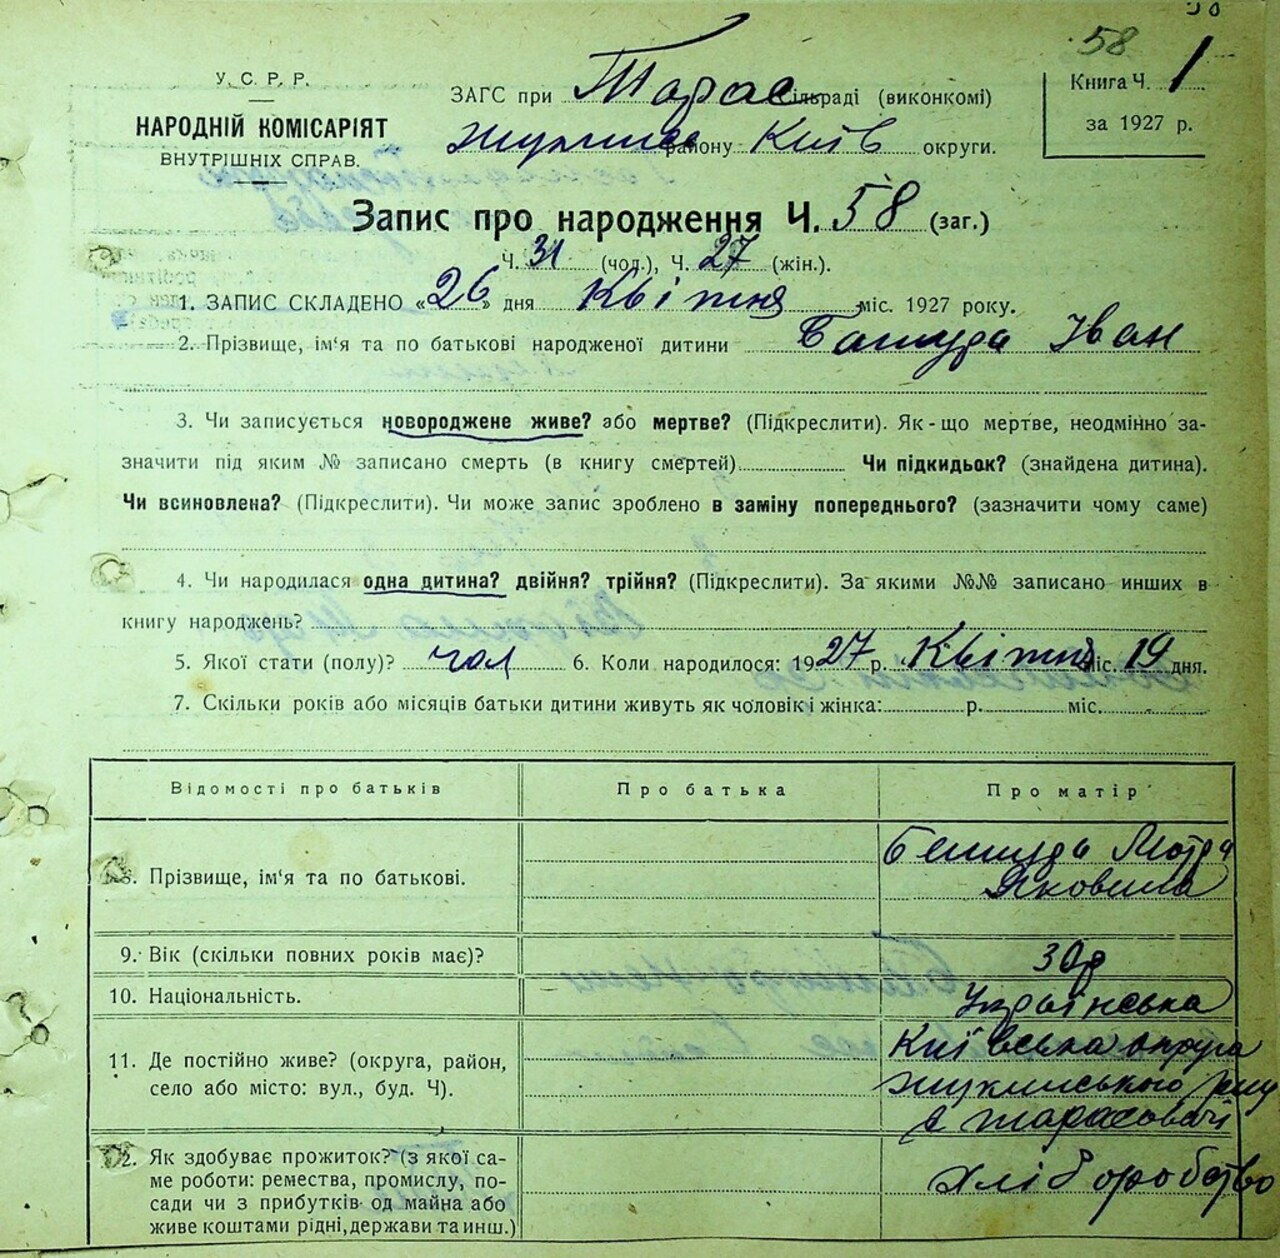 58
58
У. С. Р. Р.
НАРОДНІЙ КОМІСАРІЯТ
ВНУТРІШНІХ СПРАВ.
ЗАГС при Тарас сільраді (виконкомі)
району Київ округи.
Книга Ч. 1
за 1927 р.
Запис про народження Ч. 58 (заг.)
Ч. 31 (чол.), Ч. 27 (жін.).
1. ЗАПИС СКЛАДЕНО «26» дня Квітня міс. 1927 року.
2. Прізвище, ім‘я та по батькові народженої дитини Іван
3. Чи записується новороджене живе? або мертве? (Підкреслити). Як-що мертве, неодмінно за-
значити під яким № записано смерть (в книгу смертей) Чи підкидьок? (знайдена дитина).
Чи всиновлена? (Підкреслити). Чи може запис зроблено в заміну попереднього? (зазначити чому саме)
4. Чи народилася одна дитина? двійня? трійня? (Підкреслити). За якими №№ записано инших в
книгу народжень?
5. Якої стати (полу)? чол 6. Коли народилося: 1927 р. Квітня міс. 19 дня.
7. Скільки років або місяців батьки дитини живуть як чоловік і жінка: р. міс.
Відомості про батьків Про батька Про матір
8. Прізвище, ім‘я та по батькові. Мотря
Яковина
9. Вік (скільки повних років має)? 30р
10. Національність. Українська
11. Де постійно живе? (округа, район,
село або місто: вул., буд. Ч).
Київська округа
с Тарасовці
12. Як здобуває прожиток? (з якої са-
ме роботи: ремества, промислу, по-
сади чи з прибутків од майна або
живе коштами рідні, держави та инш.)
Хліборобство